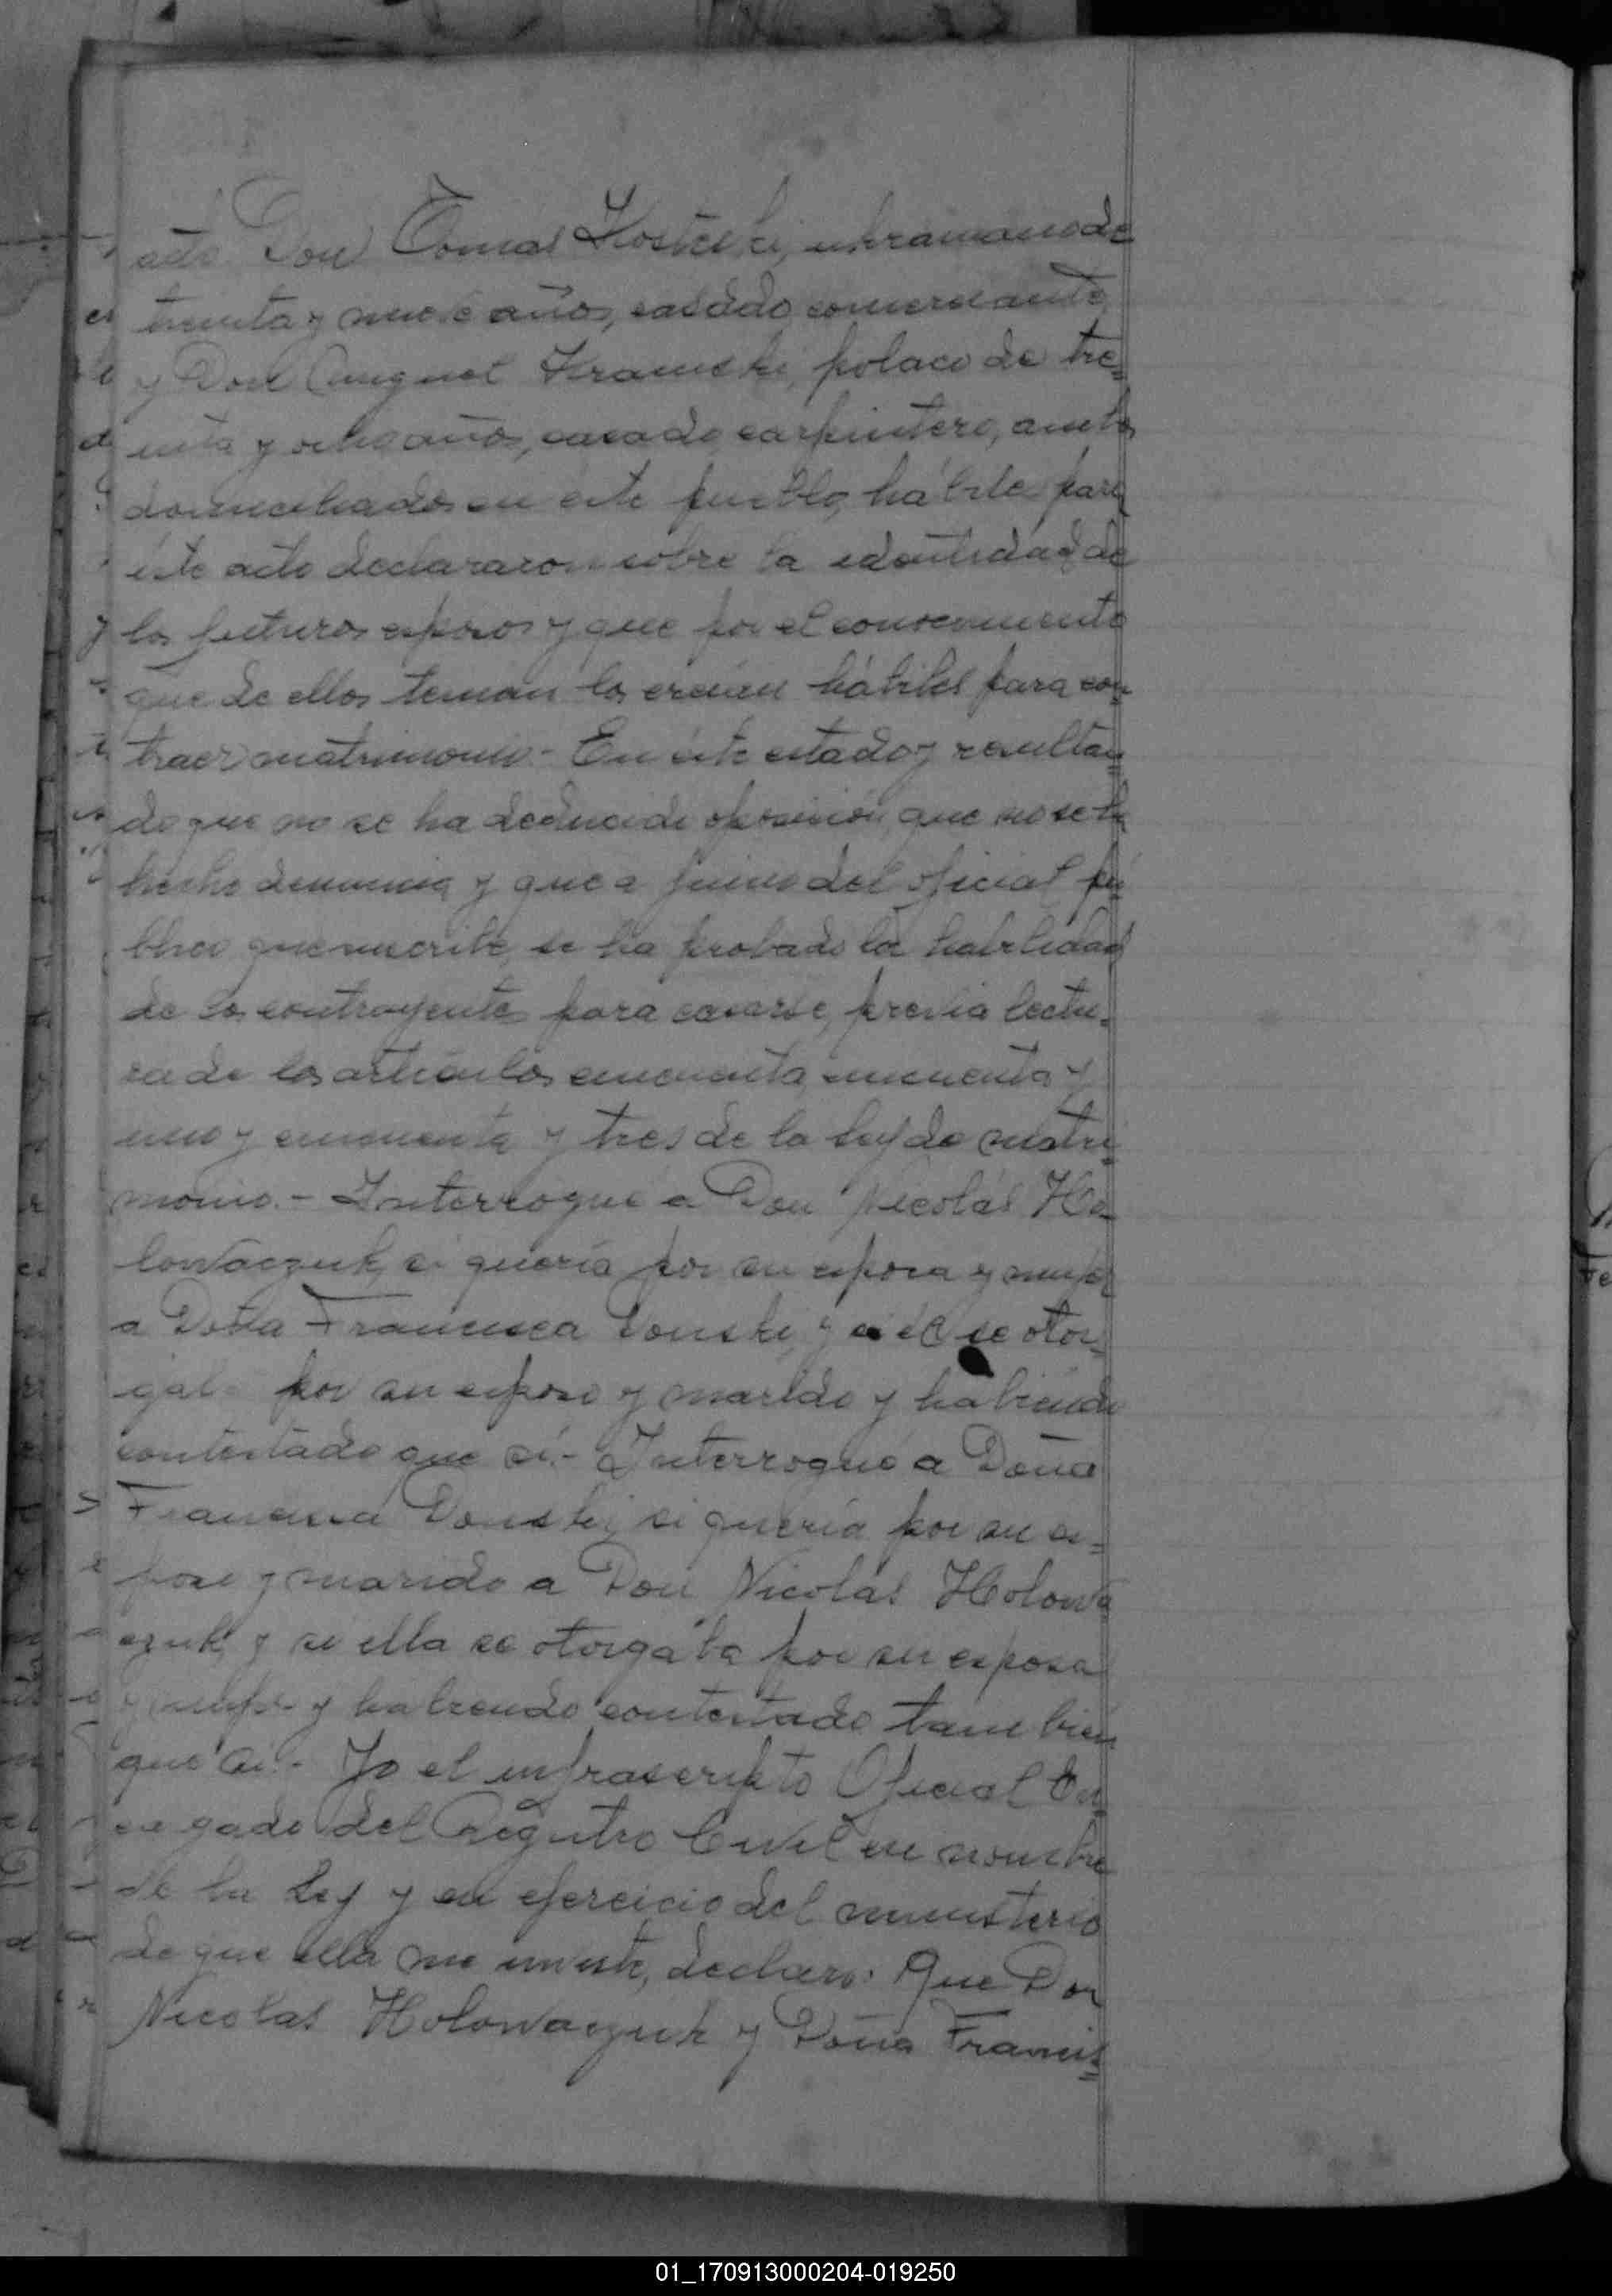 acto Don Tomás Kosteski, ukraniano de
treinta y nueve años, casado, comerciante,
y Don Kramski, polaco de tre=
inta y ocho años, casado, carpintero, ambos
domiciliados en éste pueblo, hábiles para
éste acto declararon sobre la identidad de
los futuros esposos y que por el conocimiento
que de ellos tenían los creían hábiles para con=
traer matrimonio.- En éste estado y resultan=
do que no se ha deducido oposición, que no se ha
hecho denuncia y que a juicio del oficial pú
blico que suscribe, se ha probado la habilidad
de los contrayentes para casarse, previa lectu=
ra de los artículos cincuenta, cincuenta y
uno y cincuenta y tres de la ley de matri=
monio.- Interrogué a Don Nicolás Ho=
lowaczuk, si quería por su esposa y mujer
a Doña Francisca Donski, y si él se otor=
gaba por su esposo y marido y habiendo
contestado que sí.- Interrogué a Doña
Francisca Donski, si quería por su es=
poso y marido a Don Nicolás Holowa
czuk, y si ella se otorgaba por su esposa
y mujer y habiendo contestado también
que sí.- Yo el infrascripto Oficial En=
cargado del Registro Civil en nombre
de la ley y en ejercicio del ministerio
de que ella me inviste, declaro: Que Don
Nicolás Holowaczuk y Doña Francis=
01_170913000204-019250